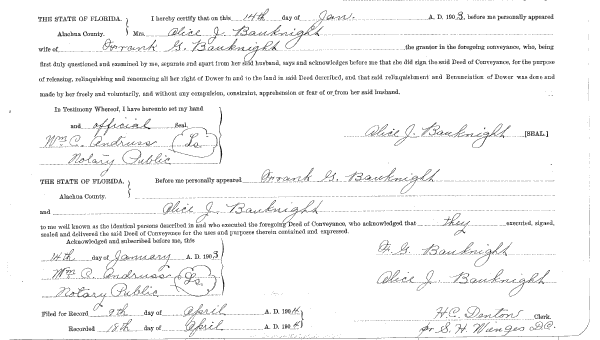 THE STATE OF FLORIDA. } I hereby certify that on this 14th day of Jan. A. D. 1903, before me personally appeared
Alachua County. Mrs. Alice J. Bauknight
wife of Frank G. Bauknight the grantor in the foregoing conveyance, who, being
first duly questioned and examined by me, separate and apart from her said husband, says and acknowledges before me that she did sign the said Deed of Conveyance, for the purpose
of releasing, relinquishing and renouncing all her right of Dower in and to the land in said Deed described, and that said relinquishment and Renunciation of Dower was done and
made by her freely and voluntarily, and without any compulsion, constraint, apprehension or fear of or from her said husband.
In Testimony Whereof, I have hereunto set my hand
and official Seal.
Wm C. Andruss Ls. Alice J. Bauknight [SEAL]
Notary Public
THE STATE OF FLORIDA. } Before me personally appeared Frank G. Bauknight
Alachua County.
and Alice J. Bauknight
to me well known as the identical persons described in and who executed the foregoing Deed of Conveyance, who acknowledged that they executed, signed,
sealed and delivered the said Deed of Conveyance for the uses and purposes therein contained and expressed.
Acknowledged and subscribed before me, this
14th day of January A. D. 1903 F. G. Bauknight
Wm C. Andruss Ls. Alice J. Bauknight
Notary Public
Filed for Record 9th day of April A. D. 1904 H.C. Denton Clerk.
Recorded 18th day of April A. D. 1904 pr S. H. Wienges D.C.